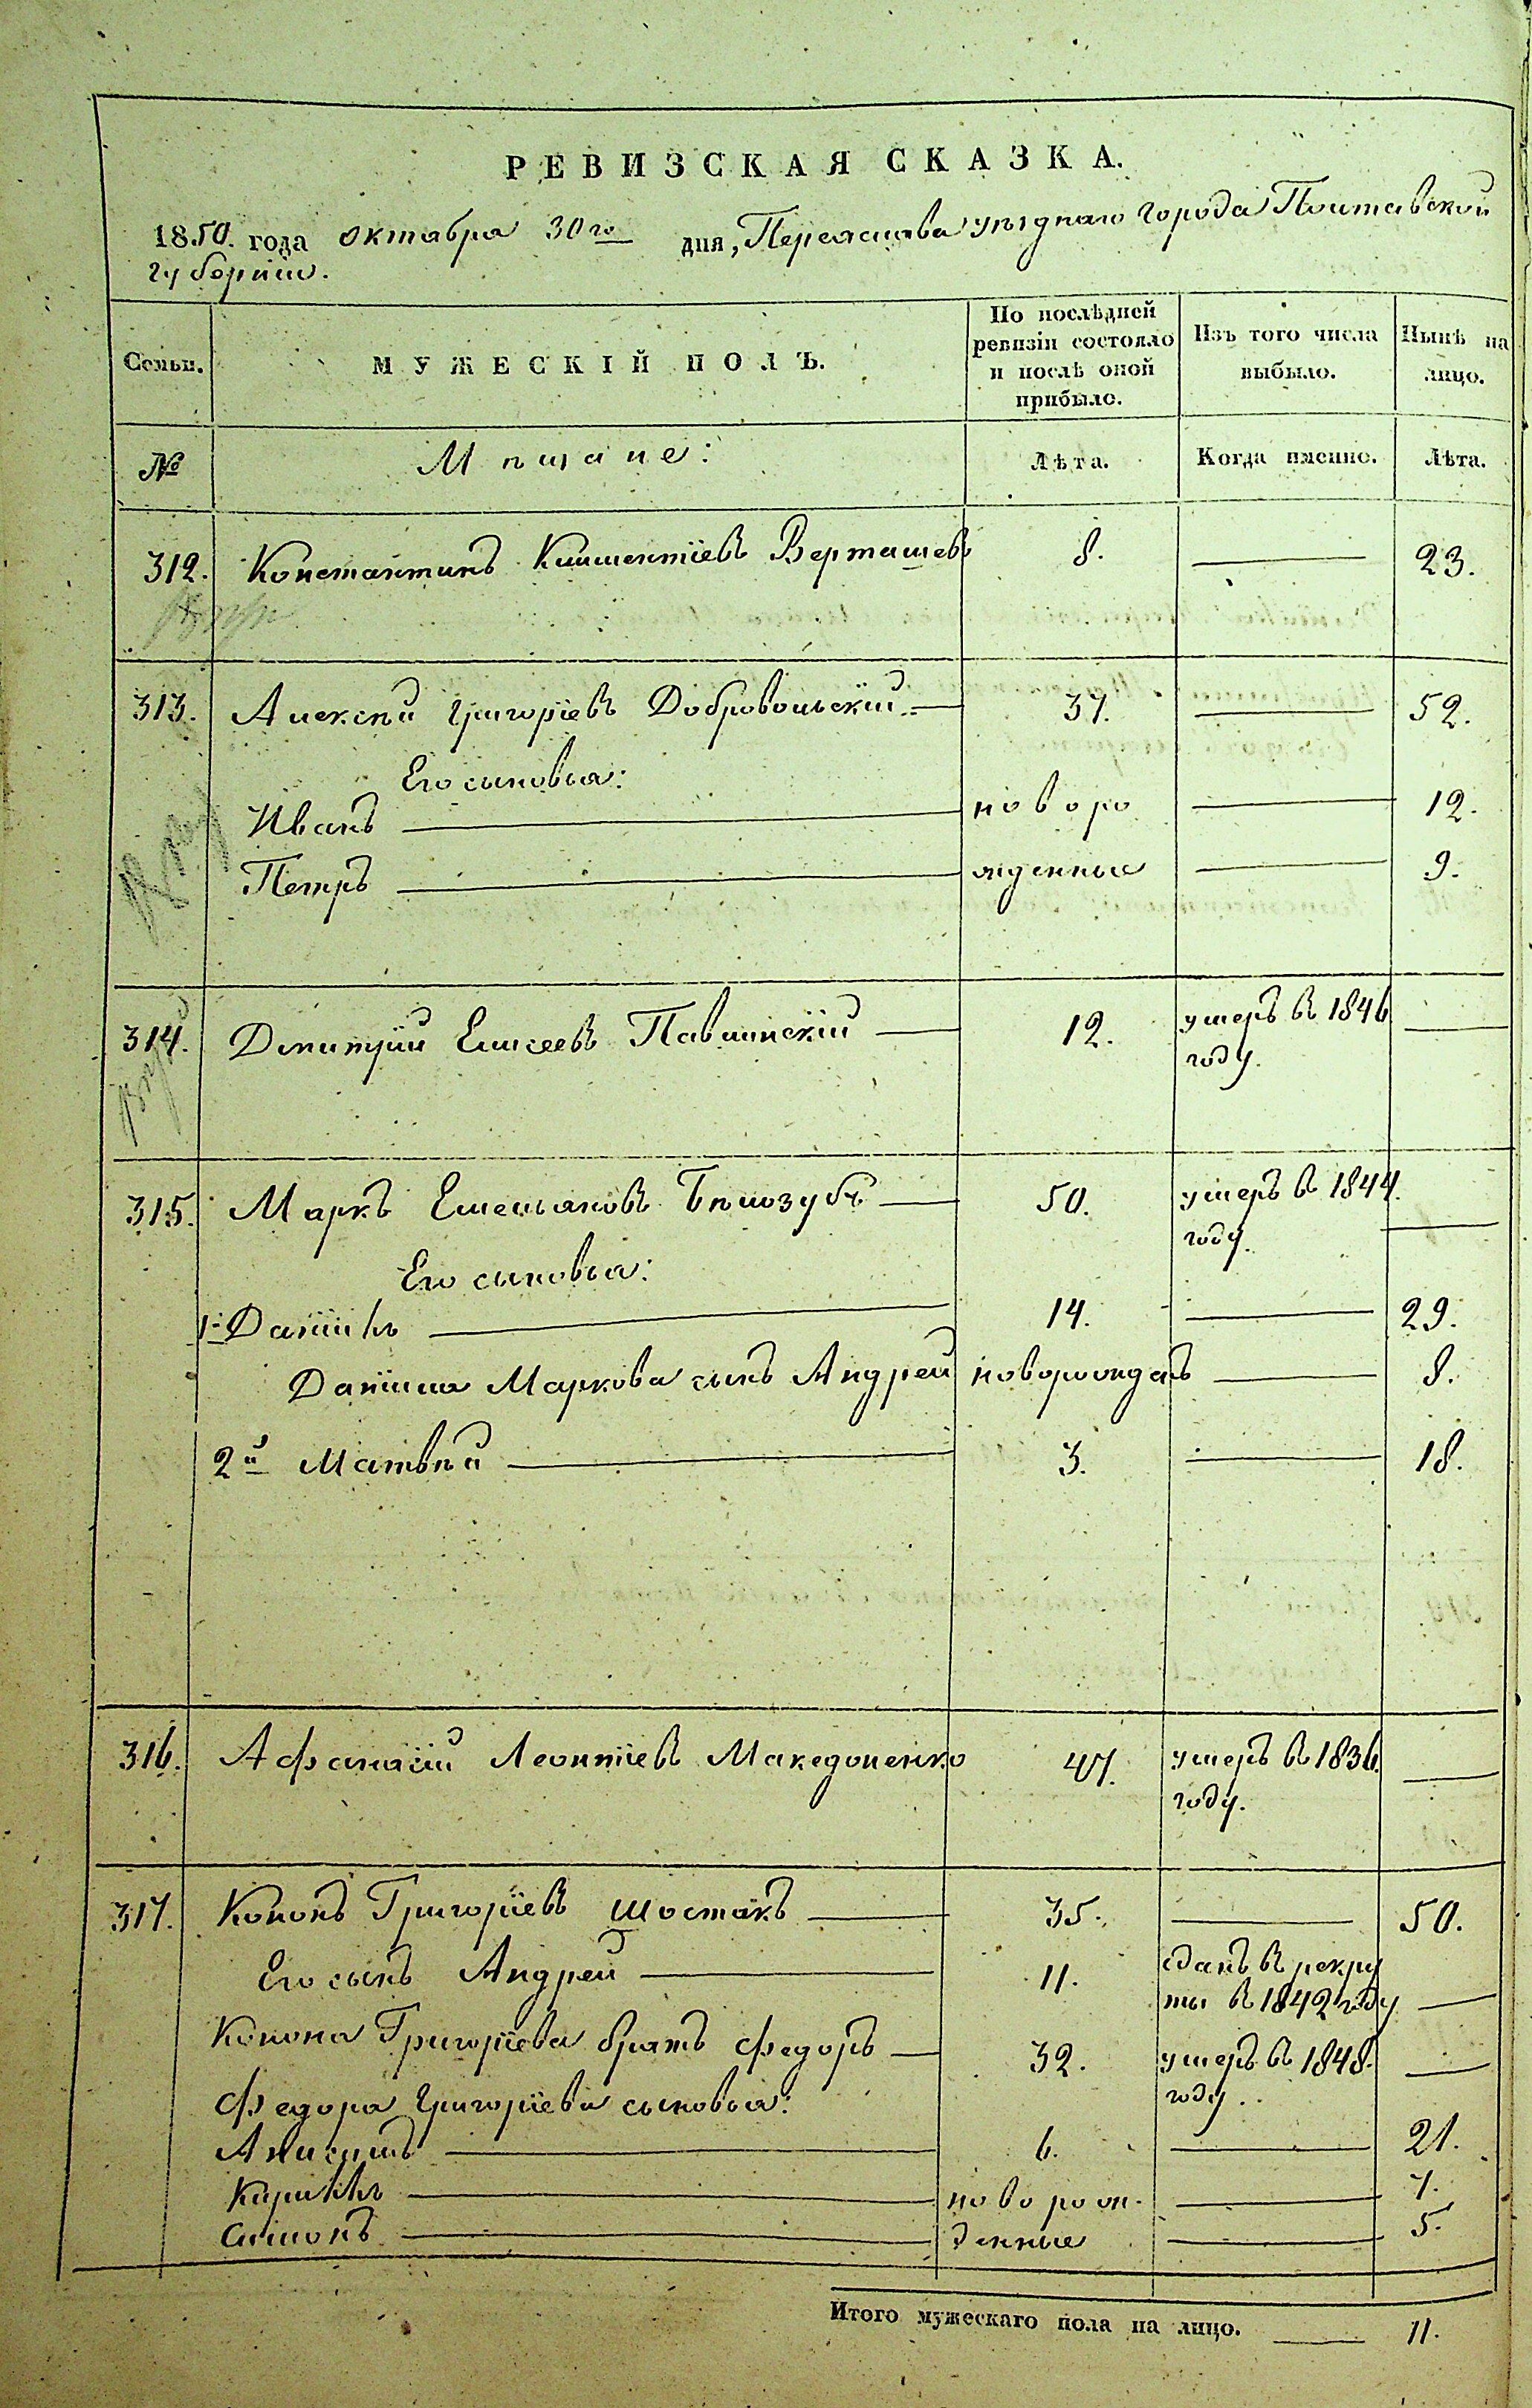 РЕВИЗСКАЯ СКАЗКА.
1850. года октября 30го дня, Переяслава уѣзднаго города Полтавской
губерніи.
Семьи.
МУЖЕСКІЙ ПОЛЪ.
По послѣдней ревизіи состояло и послѣ оной прибыло.
Изъ того числа выбыло.
Нынѣ на лицо.
№ Мѣщане: Лѣта. Когда именно. Лѣта.
312. Константинъ Климентіевъ Верташевъ 8. — 23.
313. Алексѣй Григоріевъ Добровольскій — 37. — 52.
Его сыновья:
Иванъ — новоро — 12.
Петръ — жденные — 9.
314. Дмитрій Елисеевъ Павлинскій — 12. умеръ въ 1846 —
году.
315. Маркъ Емельяновъ Бѣлозубъ — 50. умеръ въ 1844. —
году.
Его сыновья:
1й Даніилъ — 14. — 29.
Даніила Маркова сынъ Андрей новорожданъ — 8.
2й Матвѣй — 3. — 18.
316. Афанасій Леонтіевъ Македоненко 47. умеръ въ 1836. —
году.
317. Кононъ Григоріевъ Шостакъ — 35. — 50.
Его сынъ Андрей — 11. сданъ въ рекру
ты въ 1842 году —
Конона Григоріева братъ Федоръ — 32. умеръ въ 1848. —
году.
Федора Григоріева сыновья:
Анисимъ — 6. — 21.
Кирилъ — новорож- — 7.
Симонъ — денные — 5.
Итого мужескаго пола на лицо. — 11.